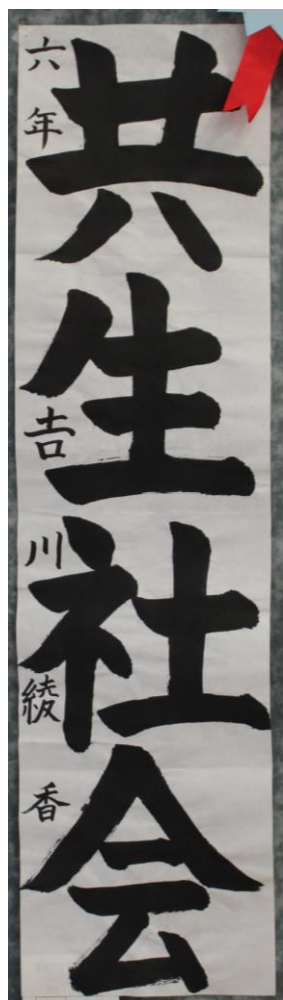 共生社会
六年 吉川綾香